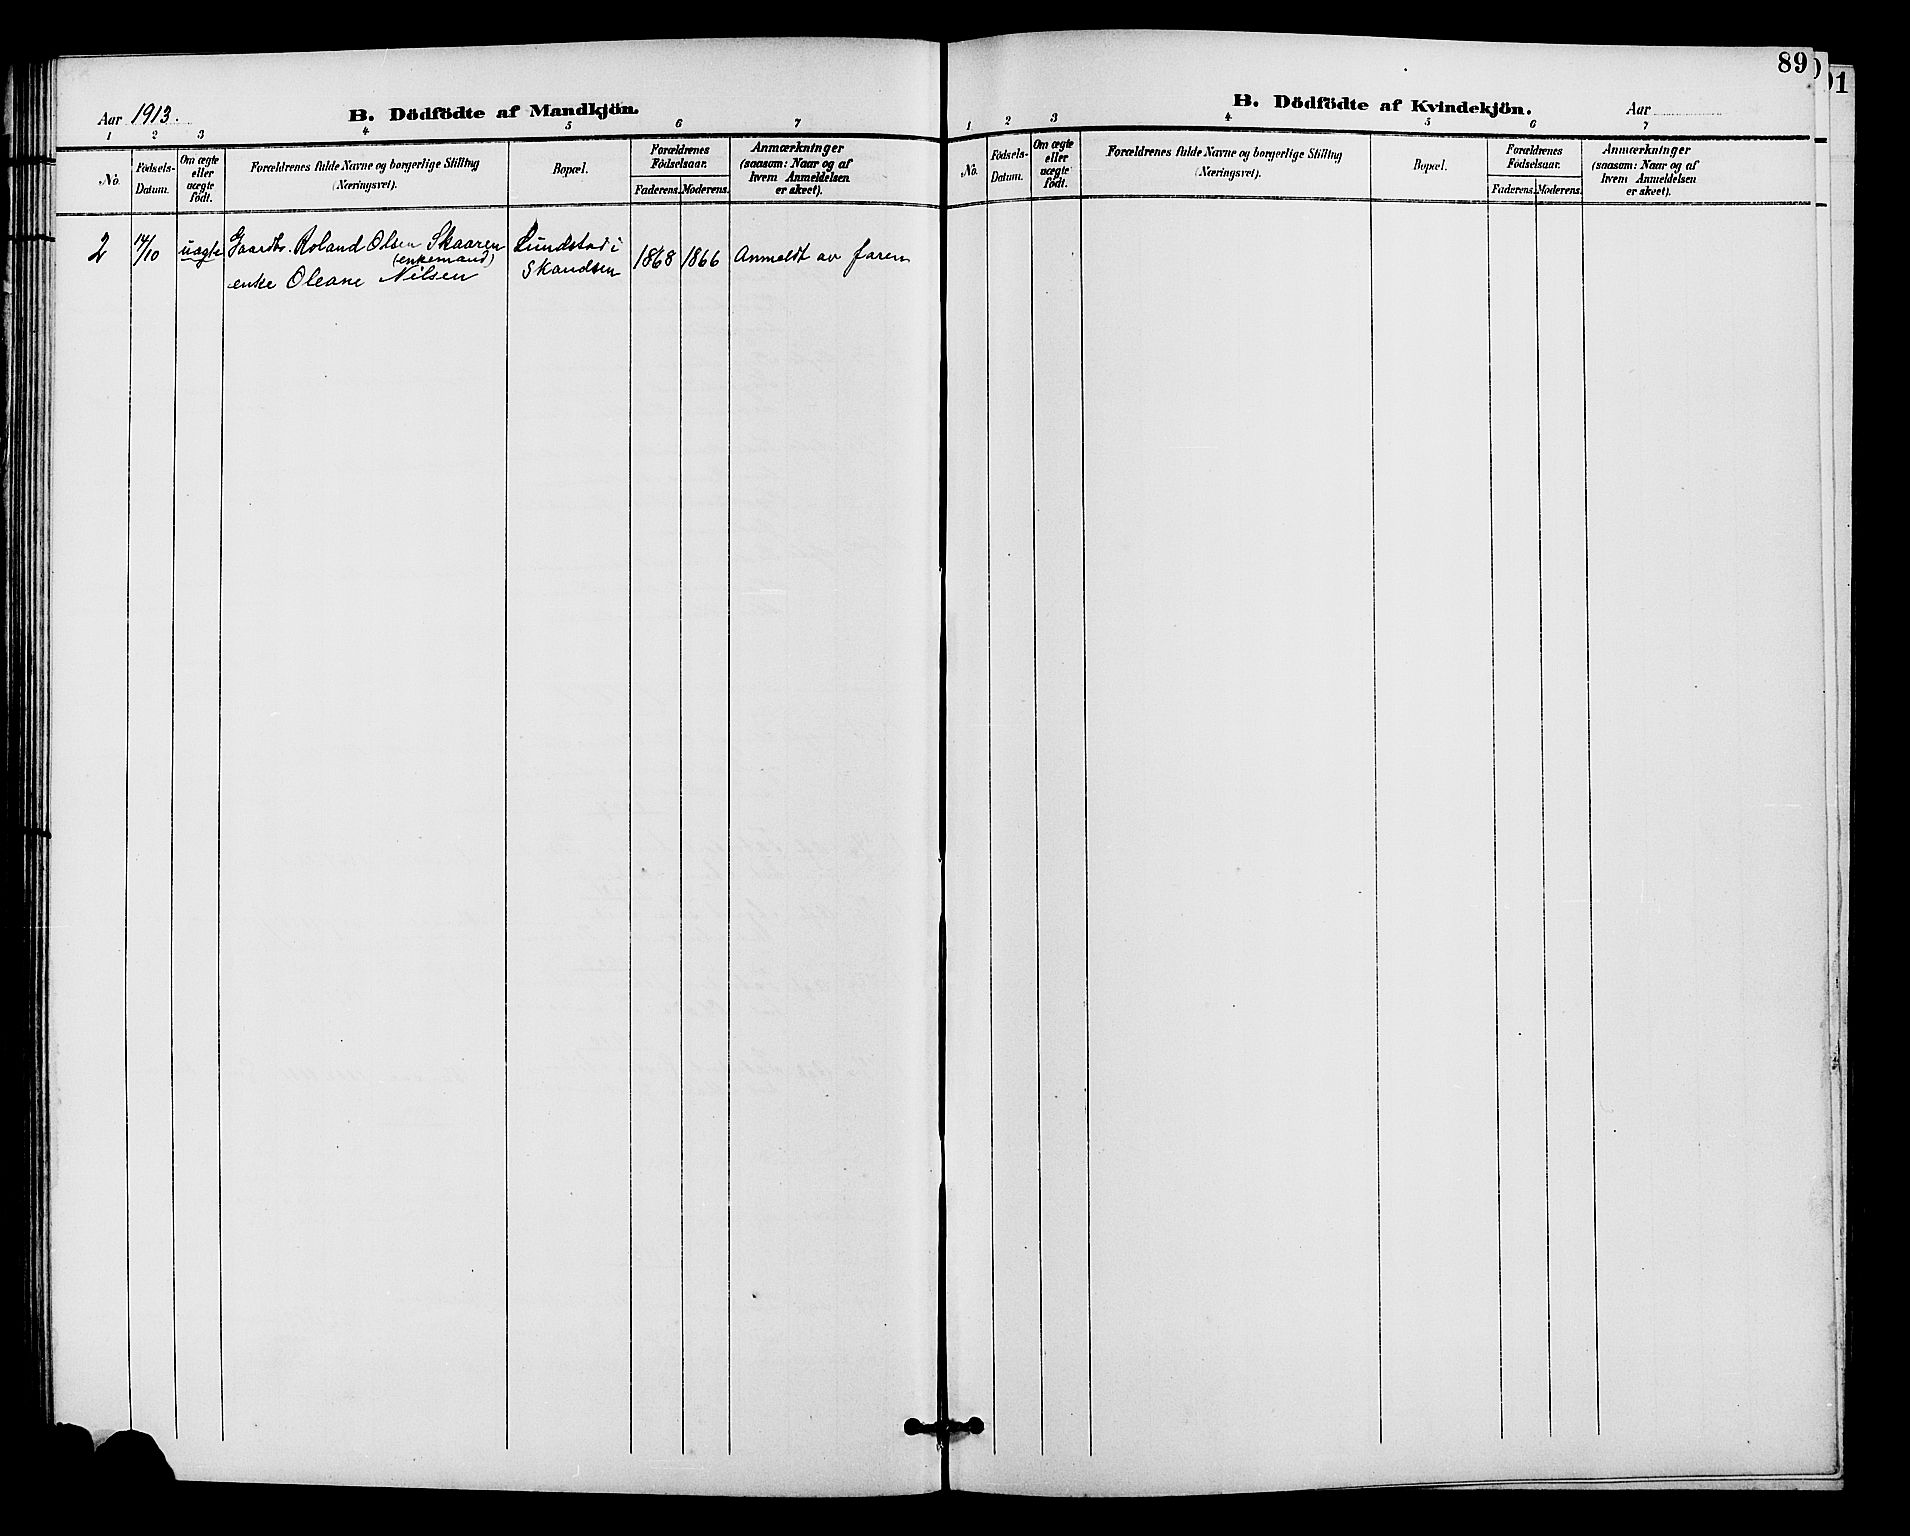 89
91
Aar 1913.
B. Dödfödte af Mandkjön.
1 2 3 4 5 6 7
No.
Födsels-
Datum.
Om ægte
eller
uægte
födt.
Forældrenes fulde Navne og borgerlige Stilling
(Næringsvei).
Bopæl.
Forældrenes
Födselsaar.
Faderens. Moderens.
Anmærkninger
(saasom: Naar og af
hvem Anmeldelsen
er skeet).
2 14/10 uægte Gaardbr. Roland Olsen Skaaren Lundstad i 1868 1866 Anmeldt av faren
(enkemand)
enke Oleane Nilsen Skandsen
B. Dödfödte af Kvindekjön.
Aar
1 2 3 4 5 6 7
No.
Födsels-
Datum.
Om ægte
eller
uægte
födt.
Forældrenes fulde Navne og borgerlige Stilling
(Næringsvei).
Bopæl.
Forældrenes
Födselsaar.
Faderens. Moderens.
Anmærkninger
(saasom: Naar og af
hvem Anmeldelsen
er skeet).